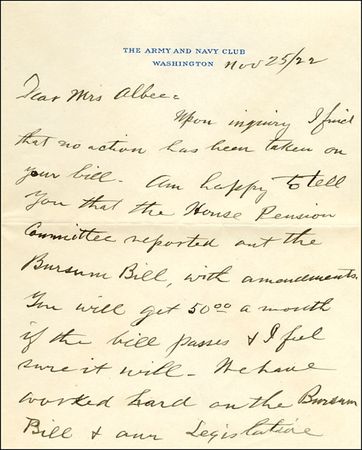 THE ARMY AND NAVY CLUB
WASHINGTON
Nov 25/22
Dear Mrs Albee:
Upon inquiry I find
that no action has been taken on
your bill. Am happy to tell
You that the House Pension
Committee reported out the
Bursum Bill, with amendments.
You will get 50⁰⁰ a month
if the bill passes & I feel
sure it will - We have
worked hard on the Bursum
Bill & our Legislative